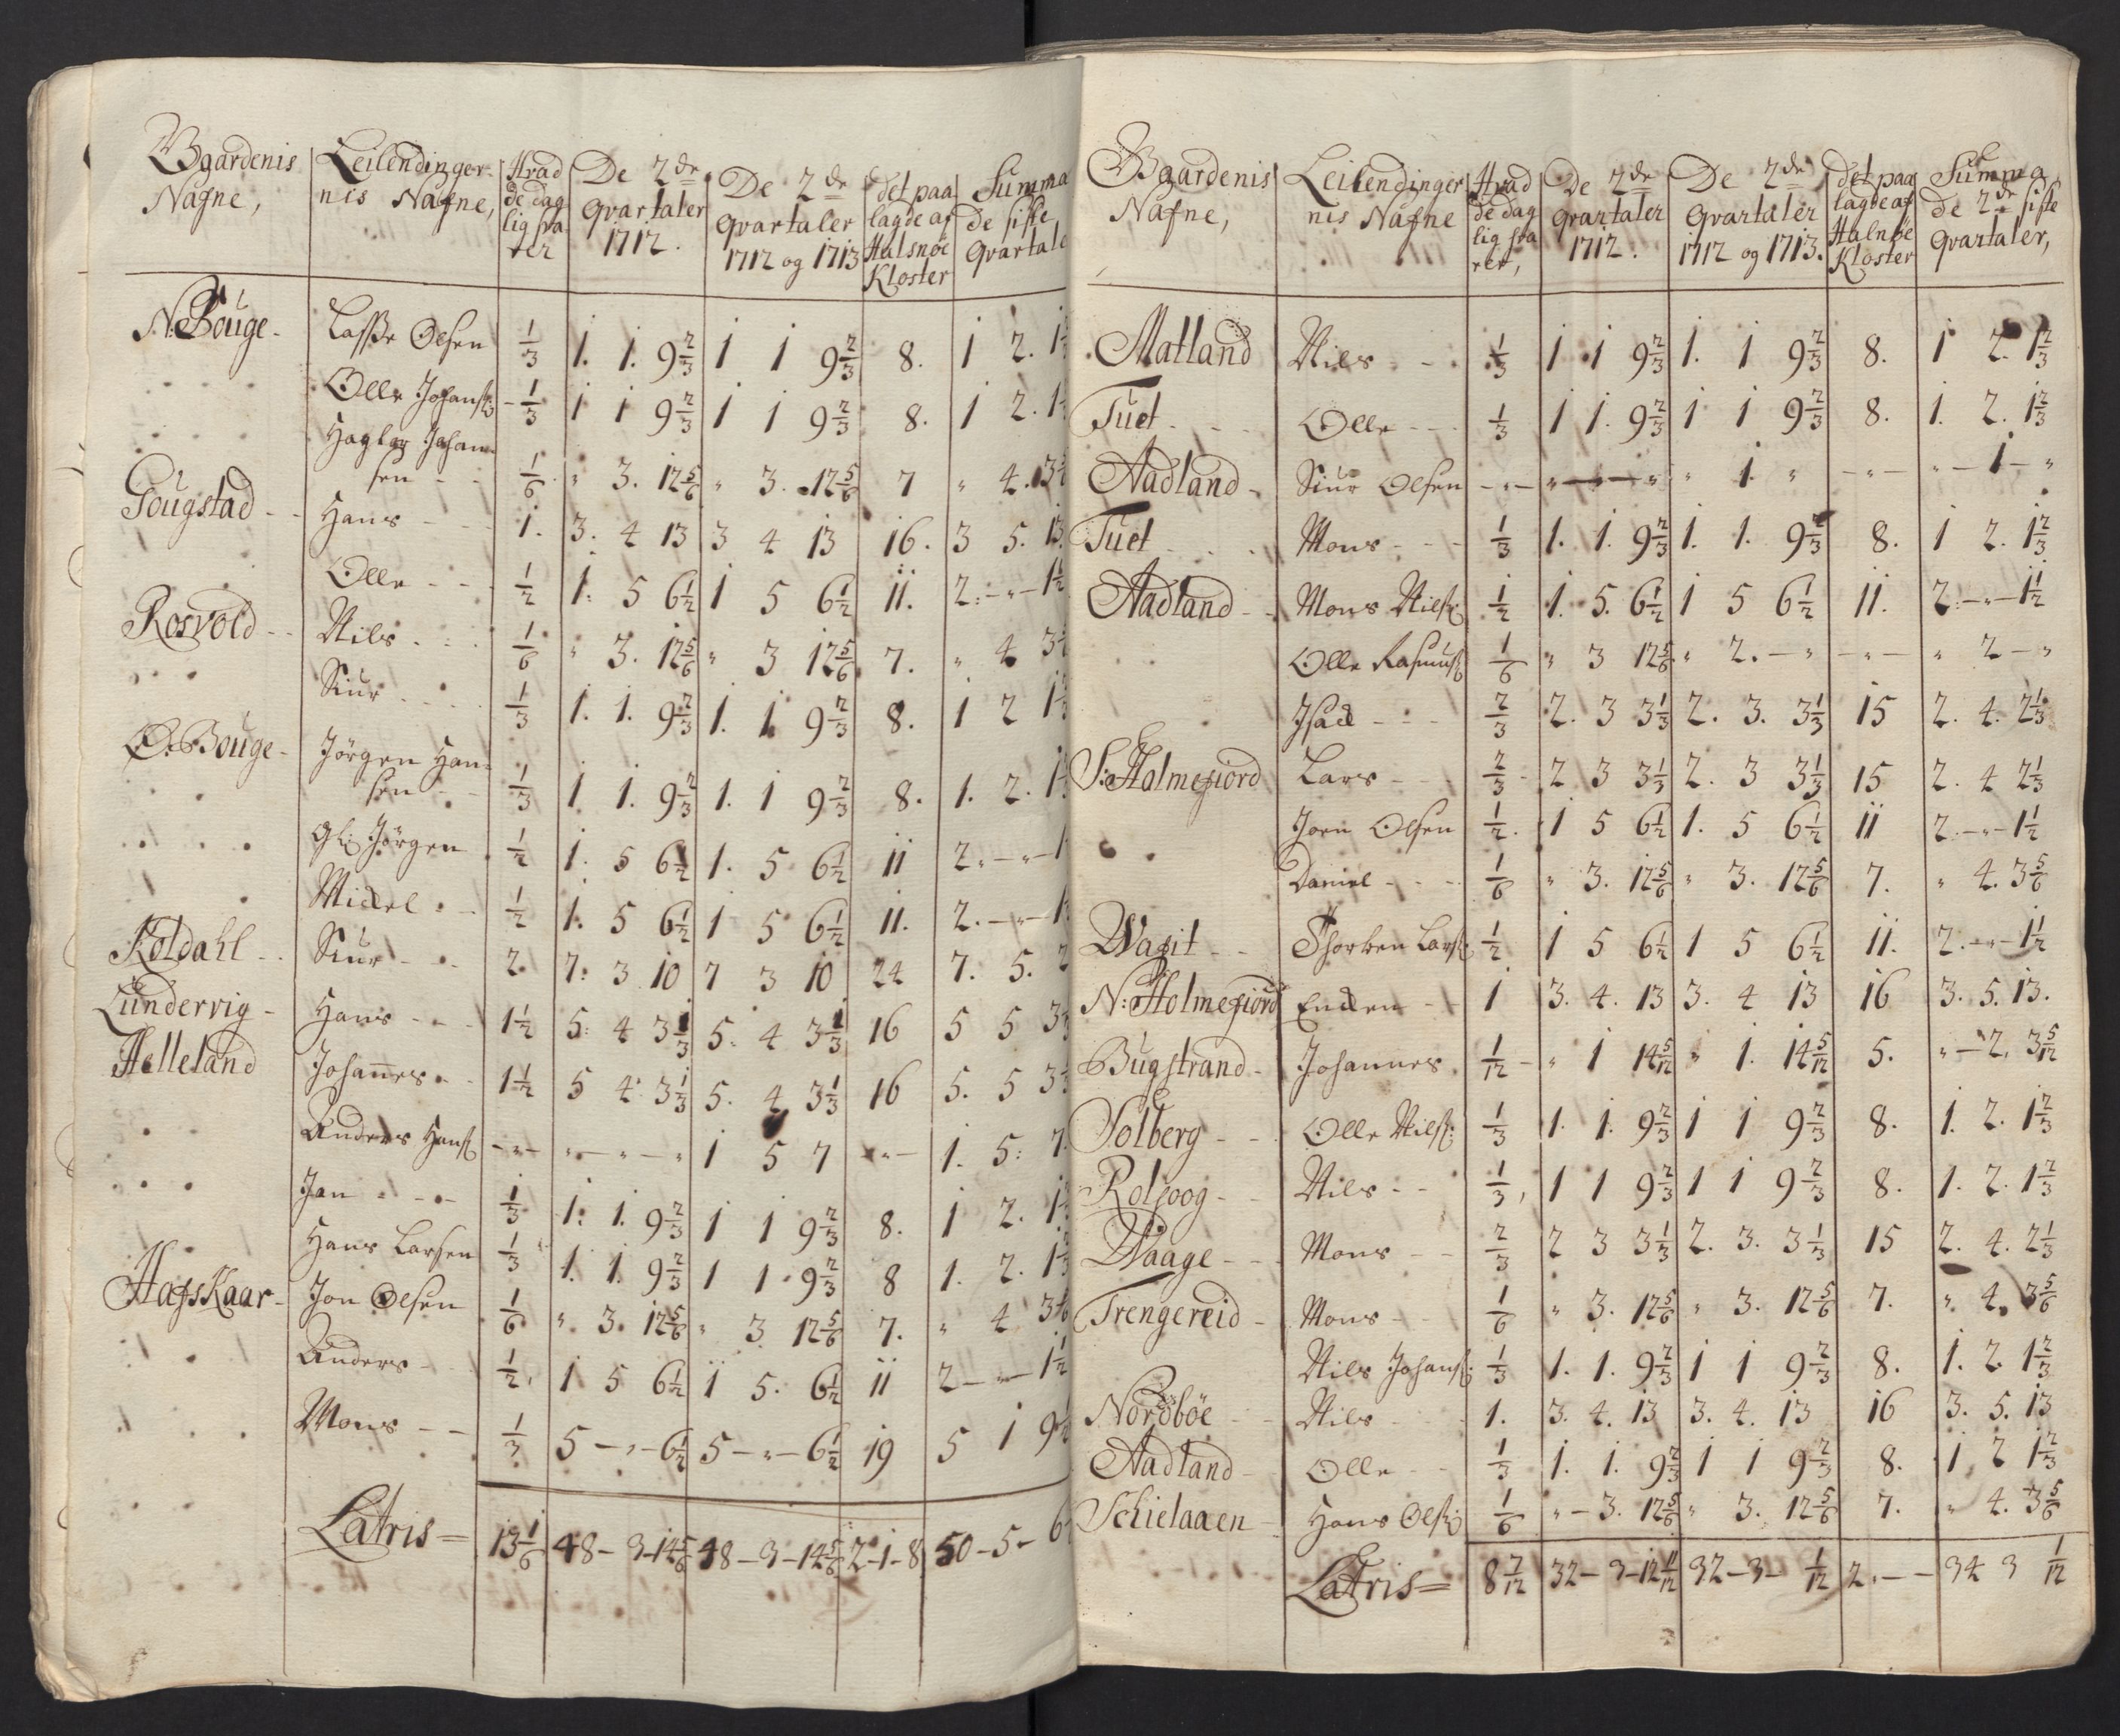 Bgardenis Nafne, | Leilendinger- nis Nafne, | Hvad de dag lig sva rer | De 2de Qvartaler 1712. | De 2de Qvartaler 1712 og 1713 | det paa lagde af Halsnöe Kloster | Summa de siste Qvartale
N. Bouge - | Lasse Olsen | 1/3 | 1. 1. 9 2/3 | 1 1 9 2/3 | 8. | 1 2. 1
Olle Johans: | 1/3 | 1 1 9 2/3 | 1 1 9 2/3 | 8. | 1 2. 1
Johan-
sen - - | 1/6 | " 3. 12 5/6 | " 3. 12 5/6 | 7 | " 4. 3
Gougstad - - | Hans - - - | 1. | 3. 4 13 | 3 4 13 | 16. | 3 5. 13
Olle - - - | 1/2 | 1: 5 6 1/2 | 1 5 6 1/2 | 11. | 2. - " - 1 1/2
Rosvold - - | Nils - - - | 1/6 | " 3. 12 5/6 | " 3 12 5/6 | 7. | " 4 3
Siur - - - | 1/3 | 1. 1. 9 2/3 | 1. 1 9 2/3 | 8. | 1 2 1
O: Bouge - | Jörgen Han-
sen - - | 1/3 | 1 1. 9 2/3 | 1. 1 9 2/3 | 8. | 1. 2. 1
Gl: Jörgen | 1/2 | 1. 5 6 1/2 | 1. 5 6 1/2 | 11 | 2. - " - 1
Mickel - - | 1/2 | 1. 5 6 1/2 | 1 5 6 1/2 | 11. | 2. - " - 1
Koldahl - - | Siur - - - | 2 | 7: 3 10 | 7 3 10 | 24 | 7. 5. 2
Lundervig - | Hans - - - | 1 1/2 | 5: 4 3 1/3 | 5: 4 3 1/3 | 16 | 5 5 3
Helleland | Johannes - - | 1 1/2 | 5 4 3 1/3 | 5. 4 3 1/3 | 16 | 5. 5 3
Anders Hans: | - " - | " - " - " | 1 5 7 | - " - | 1. 5: 7.
Jan - - - | 1/3 | 1: 1. 9 2/3 | 1 1 9 2/3 | 8. | 1 2. 1
Hans Larsen | 1/3 | 1. 1. 9 2/3 | 1 1 9 2/3 | 8 | 1. 2. 1
Hafskaar - | Jon Olsen | 1/6 | " 3. 12 5/6 | " 3 12 5/6 | 7. | " 4 3
Anders - - | 1/2 | 1 5 6 1/2 | 1 5. 6 1/2 | 11 | 2 - " - 1 1/2
Mons - - | 1/3 | 5 - " - 6 1/2 | 5 - " - 6 1/2 | 19 | 5 1 9
Latris = | 13 1/6 | 48 - 3 - 14 5/6 | 48 - 3 - 14 5/6 | 2 - 1 - 8 | 50 - 5 - 6
Bgardenis Nafne, | Leilendinger nis Nafne | Hvad de dag lig sva rer, | De 2de Qvartaler 1712. | De 2de Qvartaler 1712 og 1713. | det paa lagde af Halnöe Kloster | Summa de 2de siste Qvartaler,
Matland | Nils - - | 1/3 | 1 1 9 2/3 | 1. 1 9 2/3 | 8. | 1 2. 1 2/3
Tuet - - - | Olle - - - | 1/3 | 1 1. 9 2/3 | 1 1 9 2/3 | 8. | 1. 2. 1 2/3
Aadland - | Siur Olsen | - " - | " - " - " | " 1. " | - " - | " - 1 - "
Tuet - - - | Mons - - - | 1/3 | 1. 1. 9 2/3 | 1. 1. 9 2/3 | 8. | 1 2. 1 2/3
Aadland - - | Mons Nils: | 1/2 | 1. 5. 6 1/2 | 1 5 6 1/2 | 11. | 2 - " - 1 1/2
Olle Rasmus: | 1/6 | " 3 12 5/6 | " 2. - " | - " - | " 2 - "
Isack - - - | 2/3 | 2. 3 3 1/3 | 2. 3. 3 1/3 | 15 | 2. 4. 2 1/3
S: Holmefiord | Lars - - - | 2/3 | 2 3 3 1/3 | 2. 3 3 1/3 | 15 | 2. 4 2 1/3
Joen Olsen | 1/2. | 1 5 6 1/2 | 1. 5 6 1/2 | 11 | 2 - " - 1 1/2
Daniel - - - | 1/6 | " 3. 12 5/6 | " 3. 12 5/6 | 7. | " 4. 3 5/6
Wagit - - | Thorben Lars: | 1/2 | 1 5 6 1/2 | 1 5 6 1/2 | 11. | 2. - " - 1 1/2
N: Holmefiord | - - | 1 | 3. 4. 13 | 3. 4 13 | 16 | 3. 5. 13.
Bugstrand - | Johannes. | 1/12 | - " 1 14 5/12 | " 1. 14 5/12 | 5. | " - 2, 3 5/12
Solberg - - | Olle Nils: | 1/3 | 1. 1. 9 2/3 | 1 1 9 2/3 | 8. | 1. 2. 1 2/3
- - | Nils - - | 1/3, | 1 1 9 2/3 | 1 1 9 2/3 | 8. | 1. 2. 1 2/3
Waage - - - | Mons - - | 2/3 | 2 3 3 1/3 | 2. 3. 3 1/3 | 15 | 2. 4. 2 1/3
Trengereid - | Mons - - | 1/6 | " 3. 12 5/6 | " 3. 12 5/6 | 7. | " 4. 3 5/6
Nils Johans: | 1/3 | 1. 1. 9 2/3 | 1 1 9 2/3 | 8. | 1. 2. 1 2/3
Nordböe - - | Nils - - - | 1. | 3. 4. 13 | 3. 4. 13 | 16 | 3. 5. 13
Aadland - | Olle - - | 1/3 | 1. 1. 9 2/3 | 1 1 9 2/3 | 8. | 1 2 1 2/3
Schielaaen - | Hans Ols: | 1/6 | " - 3. 12 5/6 | " 3. 12 5/6 | 7. | " 4. 3 5/6
Latris = | 8 7/12 | 32 - 3 - 12 11/12 | 32 - 3 - 1/12 | 2. - - | 34 3 1/12